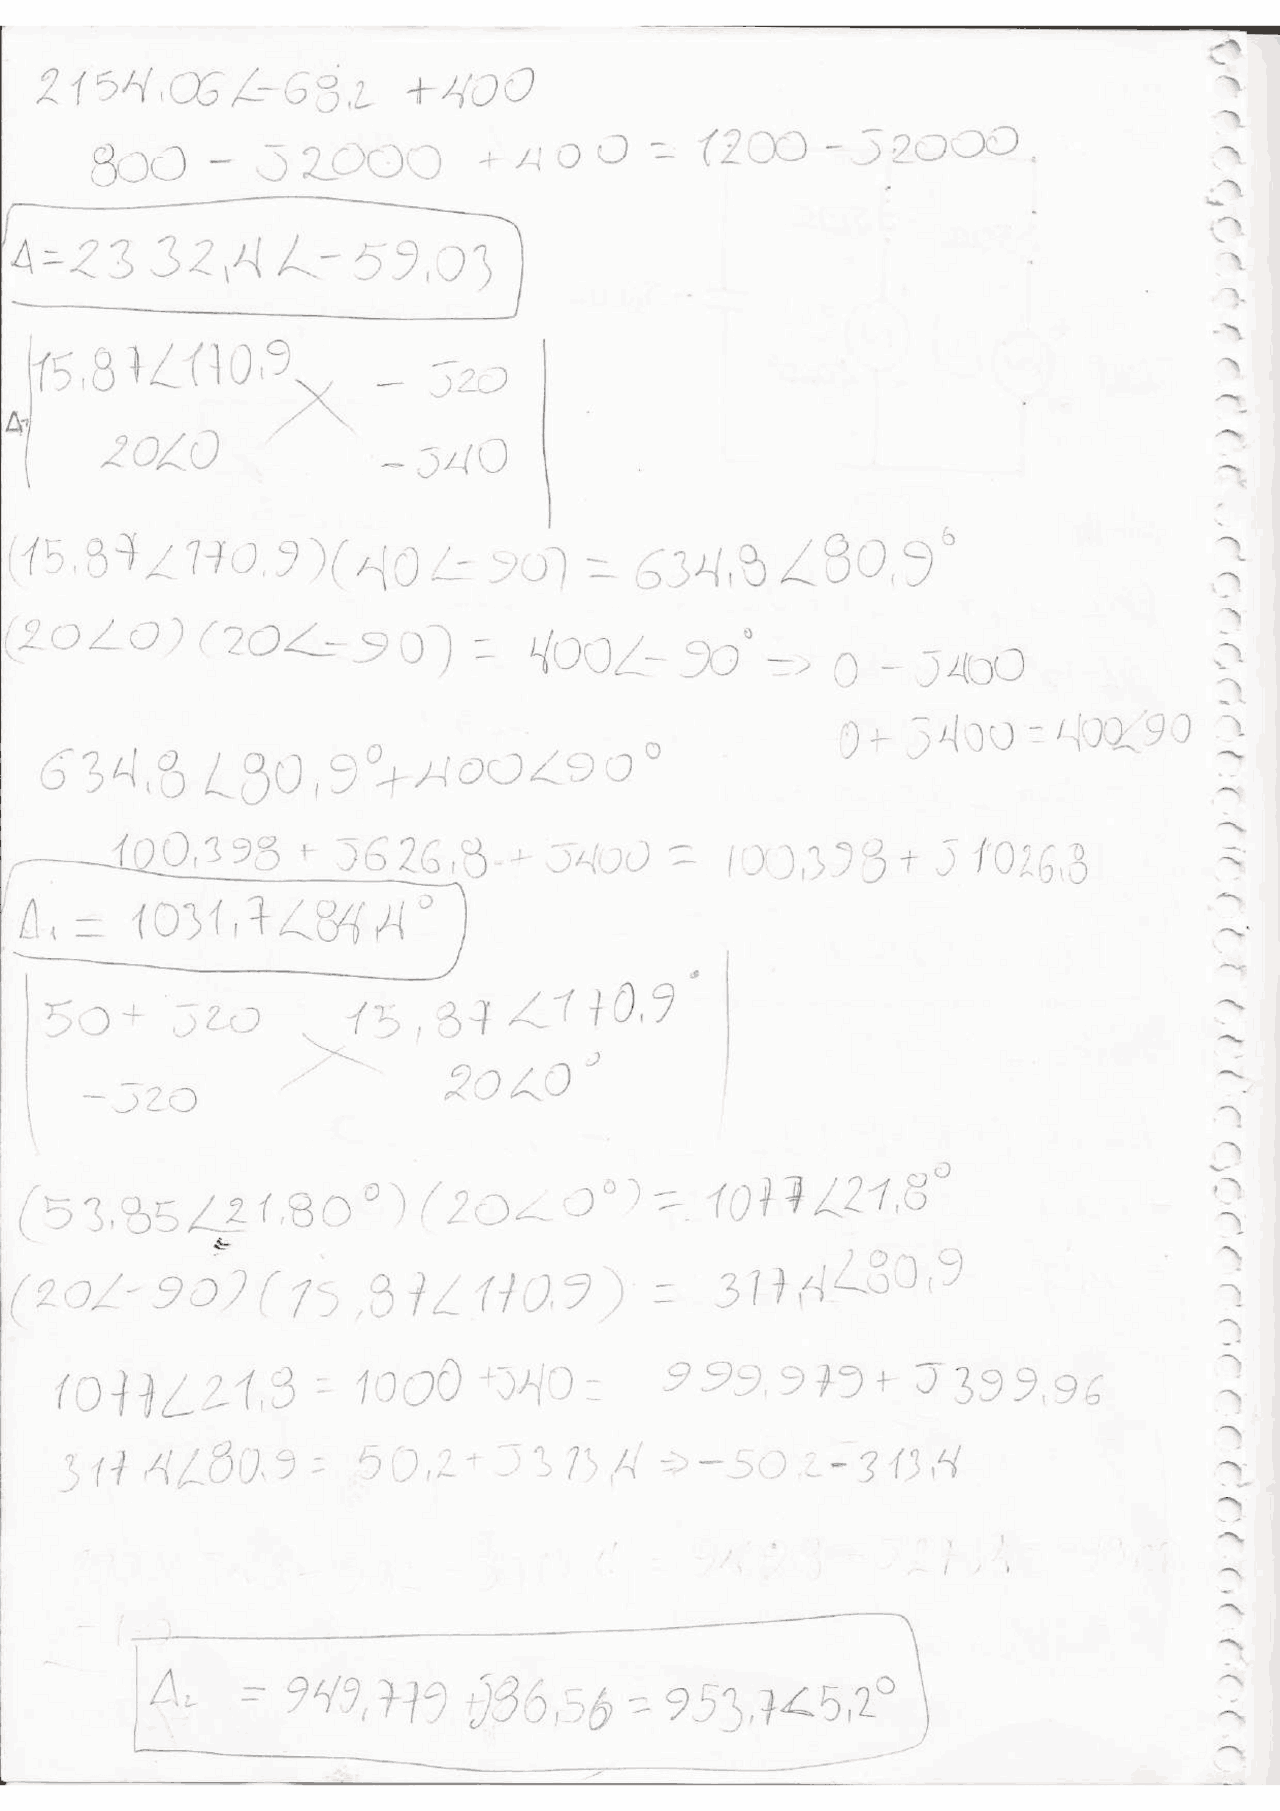 2154,06∠-68,2 +400
800 - J2000 + 400 = 1200 - J2000
Δ=2332,4∠-59,03
15,87∠170,9 - J20
Δ1
20∠0 -J40
(15,87∠170,9)(40∠-90) = 634,8∠80,9°
(20∠0)(20∠-90) = 400∠-90° => 0 - J400
0 + J400 = 400∠90
634,8∠80,9°+400∠90°
100,398 + J626,8 + J400 = 100,398 + J1026,8
Δ1 = 1031,7∠84,4°
50 + J20 15,87∠170,9°
-J20 20∠0°
(53,85∠21,80°)(20∠0°) = 1077∠21,8°
(20∠-90)(15,87∠170,9) = 317,4∠80,9
1077∠21,8 = 1000 +J40 = 999,979 + J399,96
317,4∠80,9 = 50,2 + J313,4 => -50,2 - 313,4
Δ2 = 949,779 +J86,56 = 953,7∠5,2°